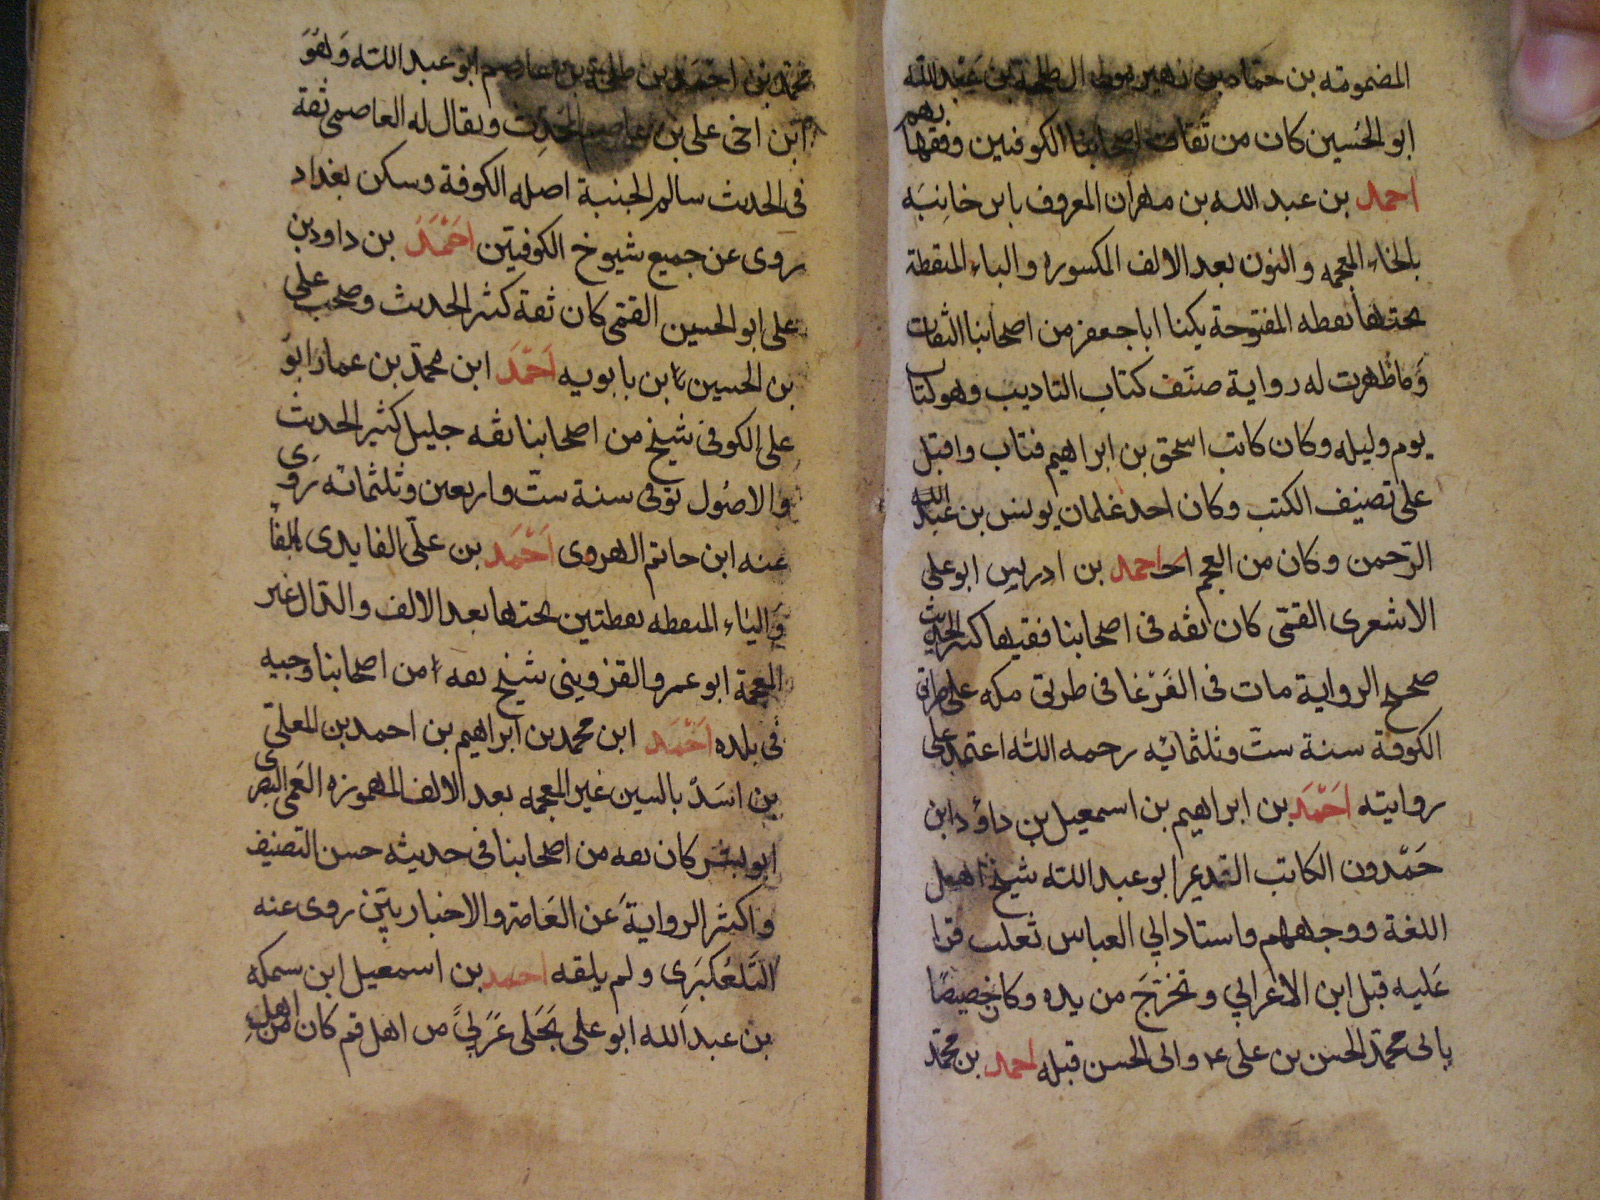 المضمومة بن حماد بن زهير مولى ال طلحة بن عبيد الله
ابو الحسين كان من ثقات اصحابنا الكوفيين وفقهائهم
احمد بن عبد الله بن مهران المعروف بابن خانبه
بالخاء المعجمه والنون بعد الالف المكسورة والباء المنقطة
تحتها نقطه المفتوحة يكنا ابا جعفر من اصحابنا الثقات
وما ظهرت له رواية صنف كتاب التاديب وهو كتاب
يوم وليله وكان كاتب اسحق بن ابراهيم فتاب واقبل
على تصنيف الكتب وكان احد غلمان يونس بن عبد
الرحمن وكان من العجم احمد بن ادريس ابو على
الاشعرى القمى كان ثقه فى اصحابنا فقيها كثير الحديث
صحيح الرواية مات فى القرعا فى طريق مكه على طريق
الكوفة سنة ست وثلثمائه رحمه الله اعتمد على
روايته احمد بن ابراهيم بن اسمعيل بن داود ابن
حمدون الكاتب النديم ابو عبد الله شيخ اهل
اللغة ووجههم واستاد ابي العباس ثعلب قرا
عليه قبل ابن الاعرابي وتخرج من يده وكان خصيصا
بابى محمد الحسن بن على ع وابى الحسن قبله احمد بن محمد
محمد بن احمد بن طلحة بن عاصم ابو عبد الله وهو
ابن اخى على بن عاصم المحدث ويقال له العاصمى ثقة
فى الحديث سالم الجنبة اصله الكوفة وسكن بغداد
روى عن جميع شيوخ الكوفيين احمد بن داود بن
على ابو الحسين القمى كان ثقة كثير الحديث وصحب على
بن الحسين بن بابويه احمد ابن محمد بن عمار ابو
على الكوفى شيخ من اصحابنا ثقه جليل كثير الحديث
والاصول توفى سنة ست واربعين وثلثمائه روى
عنه ابن حاتم القزوى احمد بن على الفايدى بالفا
والياء المنقطه نقطتين تحتها بعد الالف والدال غير
المعجمة ابو عمرو القزوينى شيخ ثقه من اصحابنا وجيه
فى بلده احمد ابن محمد بن ابراهيم بن احمد بن المعلى
بن اسد بالسين غير المعجمه بعد الالف المهموزه العمى البصرى
ابو بشر كان ثقه من اصحابنا فى حديثه حسن التصنيف
واكثر الرواية عن العامة والاخباريين روى عنه
التلعكبرى ولم يلقه احمد بن اسمعيل ابن سمكه
بن عبد الله ابو على بجلى عربي من اهل قم كان من اهل